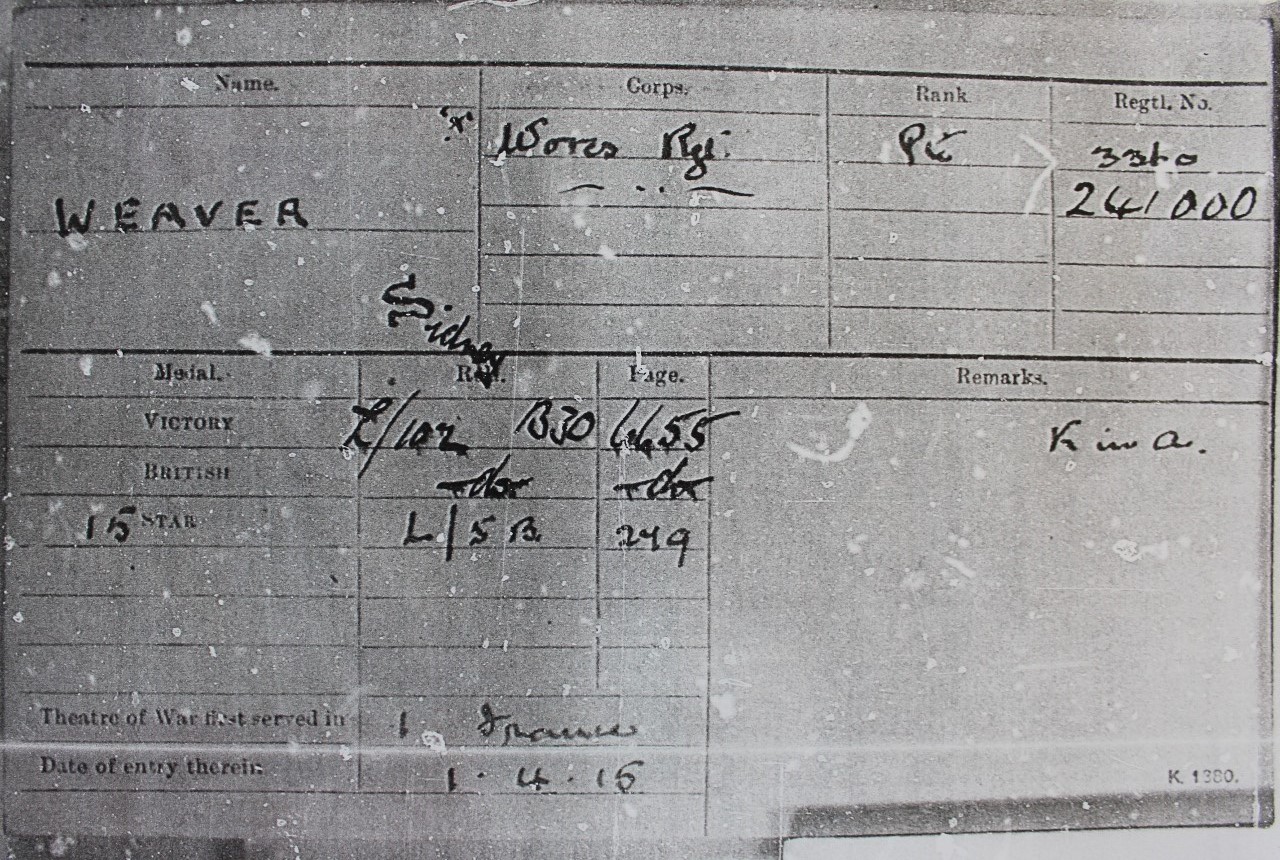 Name. Corps. Rank Regtl. No.
"X" Worcs Rgt. Pte 3360
— . . — 241000
WEAVER
Sidney
Medal. Roll. Page. Remarks.
VICTORY L/102 B30 4455 K in a.
BRITISH -do- -do-
15 STAR L/5 B. 249
Theatre of War first served in 1 France
Date of entry therein 1.4.15
K. 1380.